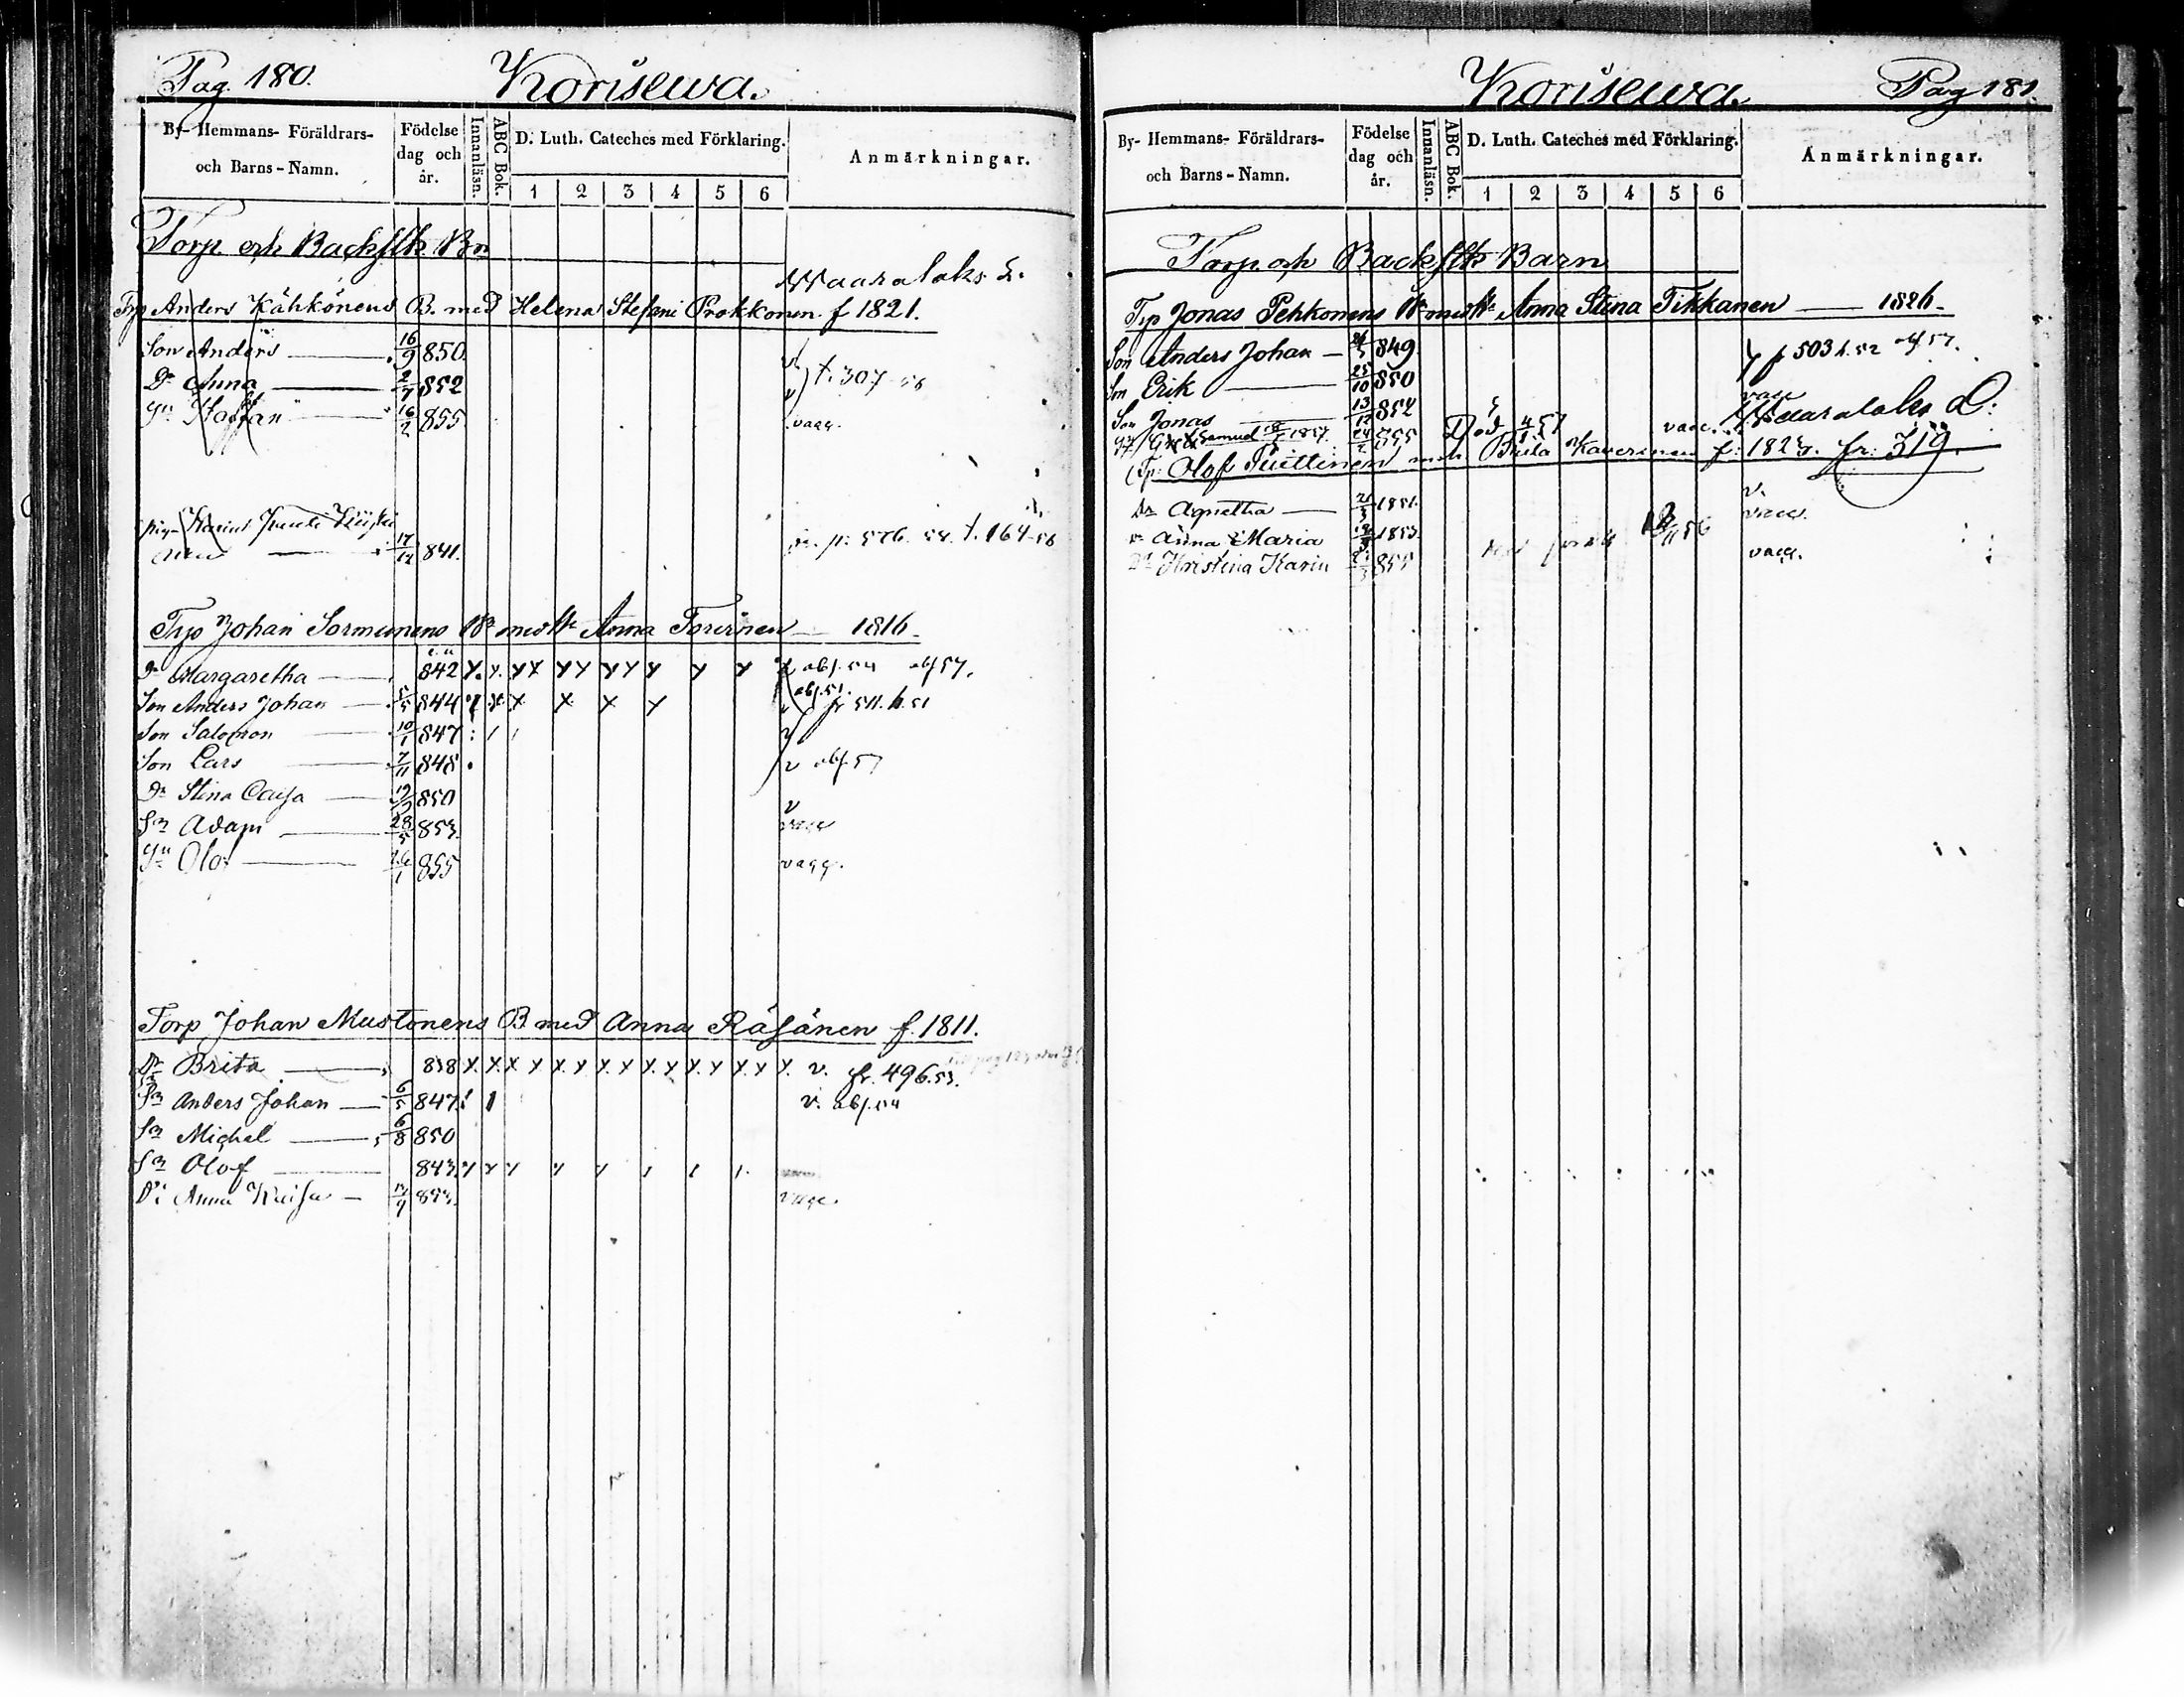 Pag. 180. Koriseva.
By- Hemmans- Föräldrars- och Barns-Namn. Födelse dag och år. Innanläsn. ABC Bok. D. Luth. Cateches med Förklaring. 1 2 3 4 5 6 Anmärkningar.
Torp. och Backstk Bn
Waaralaks L.
Trp Anders Kähkönens B. med Helena Stefani Prokkonen f 1821.
Son Anders 16/9 850. v
Dr Anna 2/7 852 v t. 307-56
Sn Staffan 16/2 855 vacc.
841. fr. p. 576. 54. t. 164-56
Trp Johan Sormunens Bn med H. Anna Toreinen 1816.
Dr Margaretha 842 x. x. x x x x x x x x x abs. 54 abs 57.
Son Anders Johan 5/5 844 x x x x x abs. 51. fr 511. h. 51
Son Salomon 10/1 847 v
Son Lars 7/11 848 v abs. 57
Dr Stina Caisa 850 v
Sn Adam 28/5 853. vacc
Sn Olof 855 vacc.
Torp Johan Mustonens B med Anna Räsänen f. 1811.
Dr Brita 838 x x x x x x x x x x x x x x x v. fr. 496.53.
Sn Anders Johan 6/5 847 v. abs. 54
Sn Michel 6/8 850
Sn Olof 843
Dr Anna Kaisa 853. vacc.
Koriseva. Pag 181.
By- Hemmans- Föräldrars- och Barns-Namn. Födelse dag och år. Innanläsn. ABC Bok. D. Luth. Cateches med Förklaring. 1 2 3 4 5 6 Anmärkningar.
Torp och Backstk Barn
Trp Jonas Pehkonens Bn med H. Anna Stina Tikkanen 1826.
Son Anders Johan 849 f 503 h. 52 abs 57.
Son Erik 25/10 850 vacc
Son Jonas 13/12 852 vacc. Waaralaks L:
Samuel 1857. 24/2 855 Död 4/1 57
Trp: Olof Puittinen med Brita Kaverinen f: 1823. fr. 319.
Dr Agnetha 21/3 1851. v. vacc.
Dr Anna Maria 1853.
Dr Kristina Karin 855 vacc.